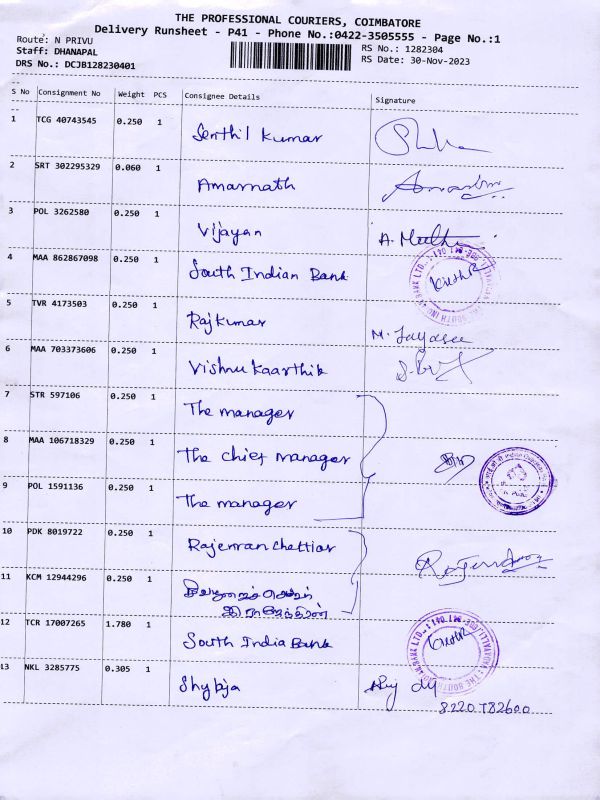 THE PROFESSIONAL COURIERS, COIMBATORE
Delivery Runsheet - P41 - Phone No.:0422-3505555 - Page No.:1
Route: N PRIVU
Staff: DHANAPAL
DRS No.: DCJB128230401
RS No.: 1282304
RS Date: 30-Nov-2023
S No Consignment No Weight PCS Consignee Details Signature
1 TCG 40743545 0.250 1 Senthil kumar
2 SRT 302295329 0.060 1 Amarnath
3 POL 3262580 0.250 1 Vijayan A. Muthu
4 MAA 862867098 0.250 1 South Indian Bank
5 TVR 4173503 0.250 1 Rajkumar M. Jayasree
6 MAA 703373606 0.250 1 Vishnu kaarthik
7 STR 597106 0.250 1 The manager
8 MAA 106718329 0.250 1 The chief manager
9 POL 1591136 0.250 1 The manager
10 PDK 8019722 0.250 1 Rajenran chettiar
11 KCM 12944296 0.250 1
12 TCR 17007265 1.780 1 South India Bank
13 NKL 3285775 0.305 1 Shybja